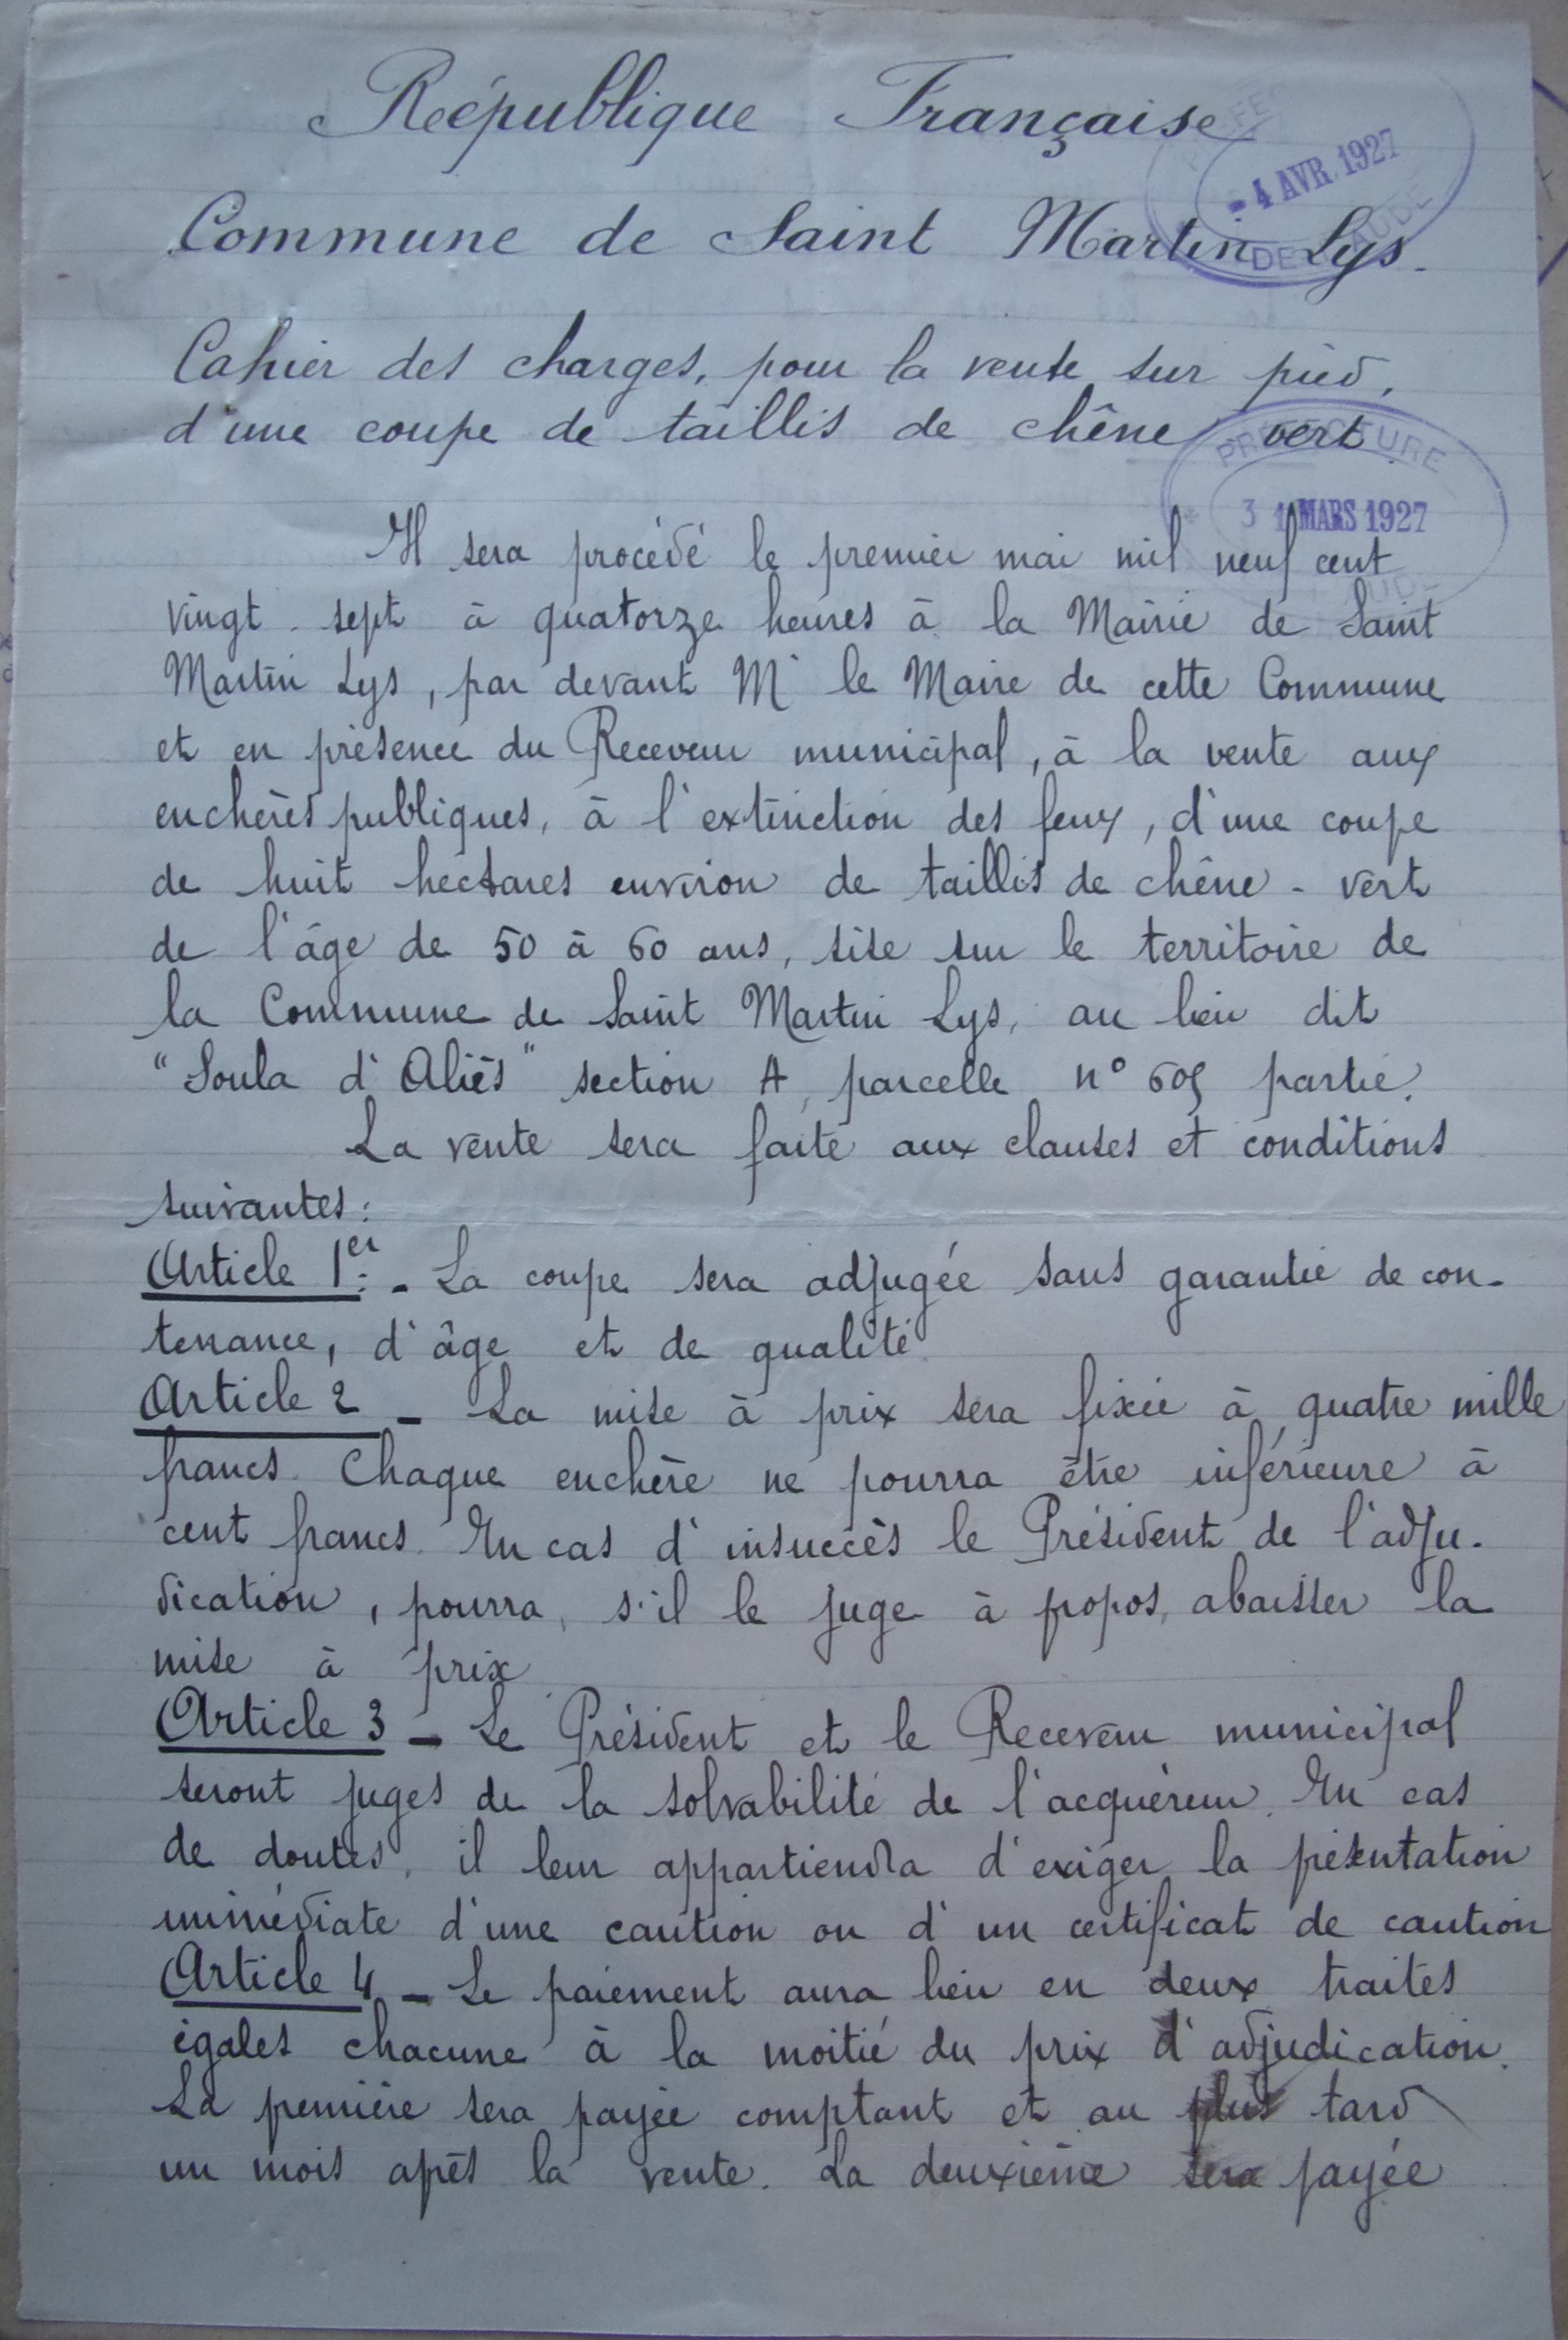 République Française
- 4 AVR. 1927
DE L'AUDE
Commune de Saint Martin Lys.
Cahier des charges, pour la vente sur pied,
d'une coupe de taillis de chêne vert.
PREFECTURE
31 MARS 1927
Il sera procédé le premier mai mil neuf cent
vingt-sept à quatorze heures à la Mairie de Saint
Martin Lys, par devant Mr le Maire de cette Commune
et en présence du Receveur municipal, à la vente aux
enchères publiques, à l'extinction des feux, d'une coupe
de huit hectares environ de taillis de chêne-vert
de l'âge de 50 à 60 ans, sise sur le territoire de
la Commune de Saint Martin Lys, au lieu dit
"Soula d'Aliès" section A, parcelle n° 605 partie.
La vente sera faite aux clauses et conditions
suivantes:
Article 1er. - La coupe sera adjugée sans garantie de con-
tenance, d'âge et de qualité.
Article 2 - La mise à prix sera fixée à quatre mille
francs. Chaque enchère ne pourra être inférieure à
cent francs. En cas d'insuccès le Président de l'adju-
dication, pourra, s'il le juge à propos, abaisser la
mise à prix.
Article 3 - Le Président et le Receveur municipal
seront juges de la solvabilité de l'acquéreur. En cas
de doutes, il leur appartiendra d'exiger la présentation
immédiate d'une caution ou d'un certificat de caution
Article 4 - Le paiement aura lieu en deux traites
égales chacune à la moitié du prix d'adjudication.
La première sera payée comptant et au plus tard
un mois après la vente. La deuxième sera payée